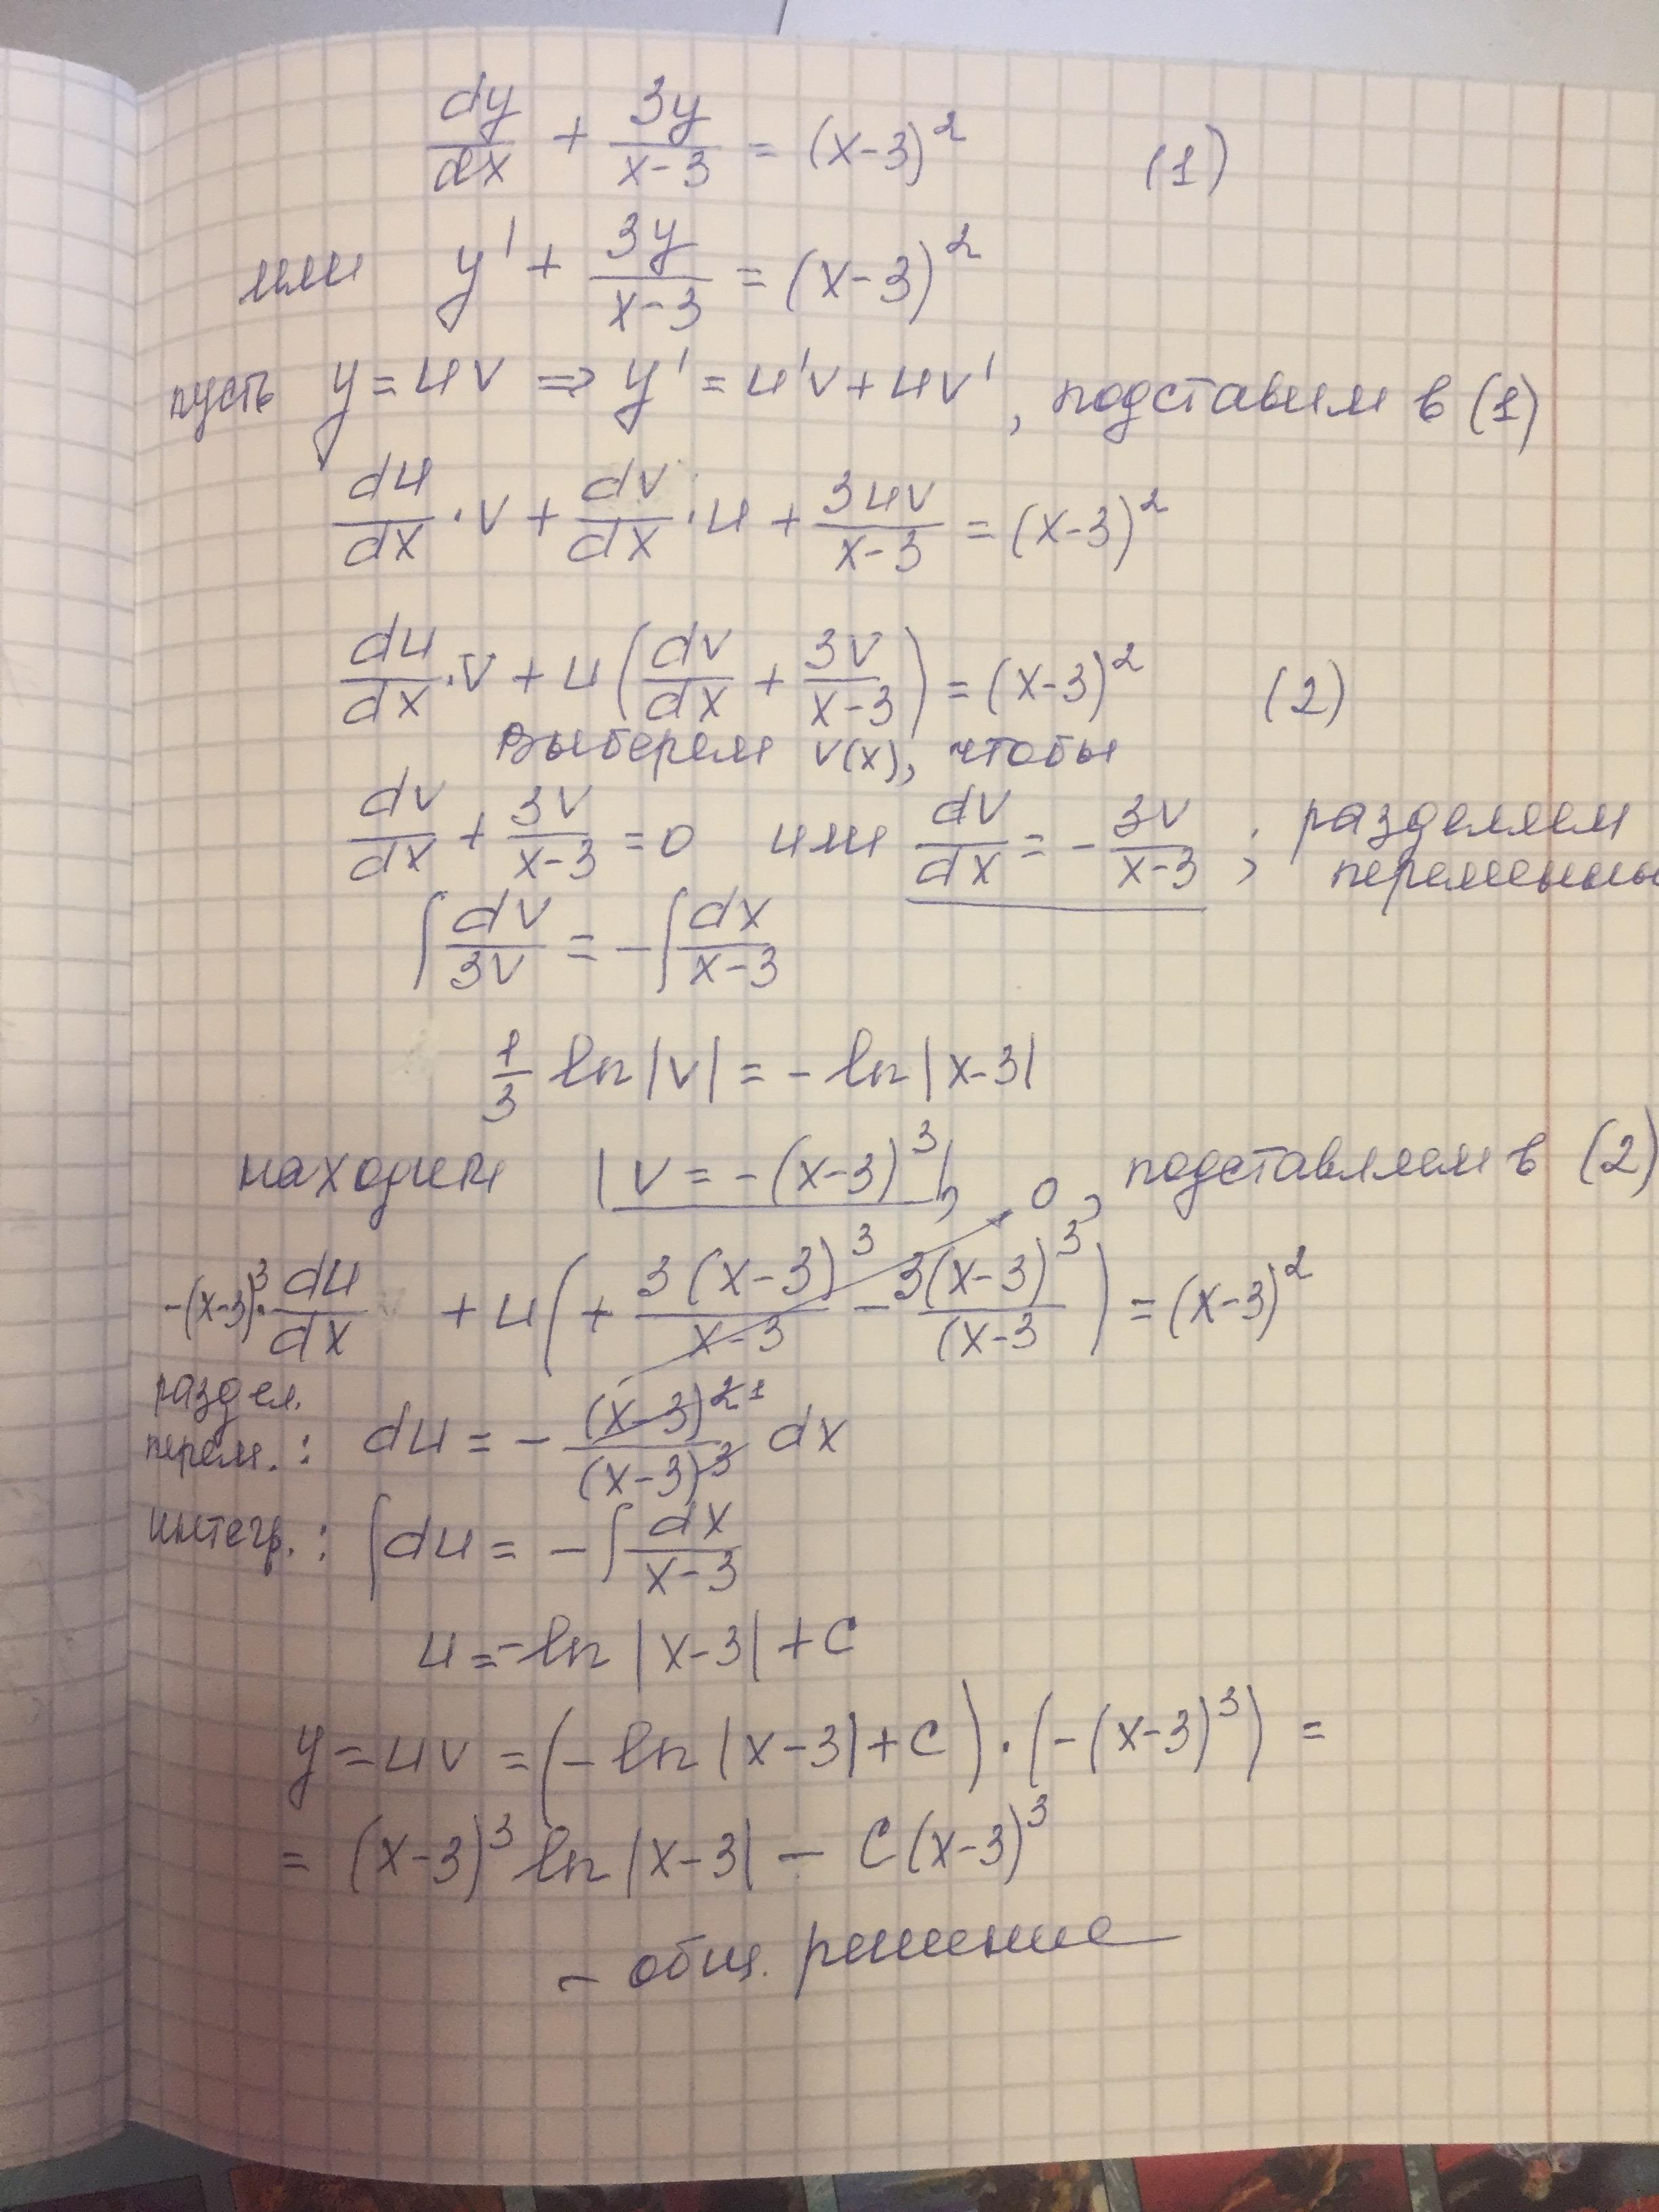 dy/dx + 3y/(x-3) = (x-3)² (1)
или y' + 3y/(x-3) = (x-3)²
пусть y = uv ⇒ y' = u'v + uv', подставим в (1)
du/dx · v + dv/dx · u + 3uv/(x-3) = (x-3)²
du/dx · v + u(dv/dx + 3v/(x-3)) = (x-3)² (2)
выберем v(x), чтобы
dv/dx + 3v/(x-3) = 0 или dv/dx = - 3v/(x-3); разделяем переменны
∫ dv/3v = - ∫ dx/(x-3)
1/3 ln|v| = - ln|x-3|
находим |v = -(x-3)³|, 0, подставляем в (2)
-(x-3)³ · du/dx + u(+ 3(x-3)³/(x-3) - 3(x-3)³/(x-3) = (x-3)²
раздел. перем.: du = - (x-3)²¹/(x-3)³ dx
интегр.: ∫du = - ∫ dx/(x-3)
u = -ln|x-3| + C
y = uv = (-ln|x-3| + C) · (-(x-3)³) =
= (x-3)³ ln|x-3| - C(x-3)³
- общ. решение